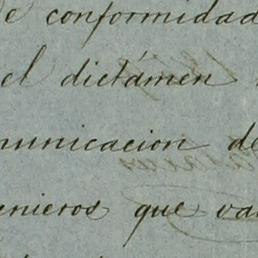 de conformidad
el dictámen
municacion de
enieros que va